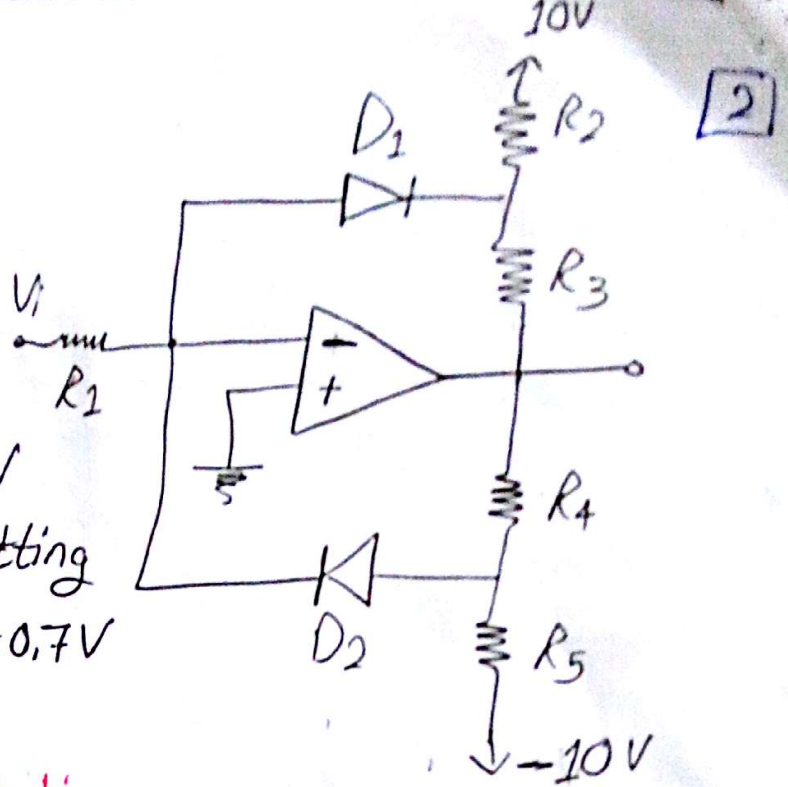 10V
2
R2
D1
R3
Vi
R1
-
+
R4
tting
0,7V
D2
R5
-10V